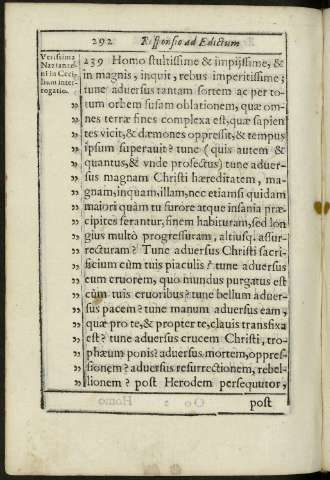 292 Responsio ad Edictum
Verissima
Nazianze-
ni in Cecil
lium inter-
rogatio.
239 Homo stultissime & impijssime, &
in magnis, inquit, rebus imperitissime;
tune aduersus tantam sortem ac per to-
tum orbem fusam oblationem, quæ om-
nes terræ fines complexa est, quæ sapien
tes vicit, & dæmones oppressit, & tempus
ipsum superauit? tune (quis autem &
quantus, & vnde profectus) tune aduer-
sus magnam Christi hæreditatem, ma-
gnam, inquam, illam, nec etiamsi quidam
maiori quàm tu furore atque insania præ-
cipites ferantur, finem habituram, sed lon
gius multò progressuram, altiusq. assur-
recturam? Tune aduersus Christi sacri-
ficium cùm tuis piaculis? tune aduersus
eum cruorem, quo mundus purgatus est
cùm tuis cruoribus? tune bellum aduer-
sus pacem? tune manum aduersus eam,
quæ pro te, & propter te, clauis transfixa
est? tune aduersus crucem Christi, tro-
phæum ponis? aduersus mortem, oppres-
sionem? aduersus resurrectionem, rebel-
lionem? post Herodem persequutor,
post